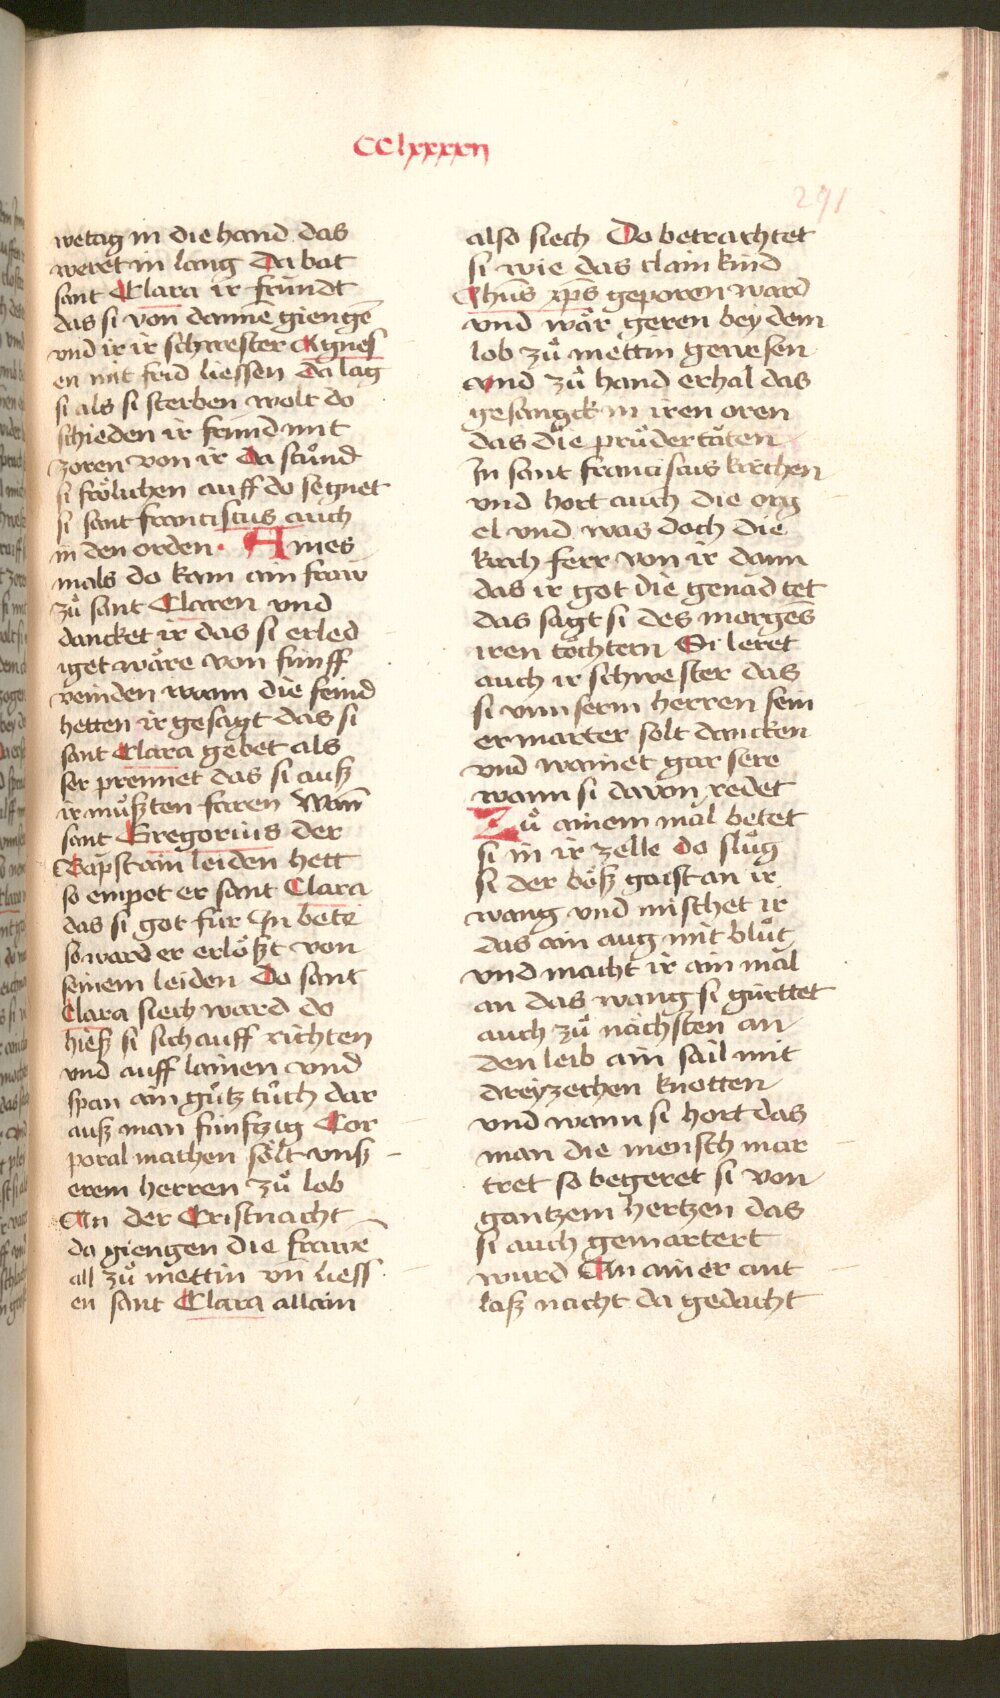 CClxxxxij
291
wetag in die hand das
weret in lang Da bat
sant Clara ir fründt
das si von dannē giengē
vnd ir ir schwester Agnes
en mit frid liessen Da lag
si als si sterben wolt do
schieden ir fraind mit
zoren von ir Da stůnd
si frölichen auff do segnet
si sant franciscus auch
in den orden · Aines
mals do kam ain fraw
zů sant Claren vnd
dancket ir das si erled
iget wäre von fünff
veinden wann die feind
hetten ir gesagt das si
sant Clara gebet als
ser prennet das si auß
ir můßten faren Wan̄
sant Gregorius der
Bapst ain leiden hett
so empot er sant Clara
das si got für In bete
so ward er erlößt von
seinem leiden Do sant
Clara siech ward do
hieß si sich auff richten
vnd auff lainen vnd
span ain gůtz tůch dar
auß man fünfzig Cor
poral machen sölt vnß
erem herren zů lob
An der Cristnacht
da giengen die frawē
all zů mettin vn̄ liess
en sant Clara allain
also siech Do betrachtet
si wie das clain kind
Jhūs xp̄s geporen ward
vnd wär geren bey dem
lob zů mettin gewesen
vnd zů hand erhal das
gesangck in iren oren
das die průder täten
In sant franciscus kirchen
vnd hort auch die org
el vnd was doch die
kirch ferr von ir dann
das ir got die genad tet
das sagt si des morgēs
iren töchtern Si leret
auch ir schwester das
si vnnserm herren sein
er marter solt dancken
vnd wainet gar sere
wann si davon redet
Zů ainem mal betet
si in ir zelle do slůg
si der böß gaist an ir
wang vnd mischet ir
das ain aug mit blůt
vnd macht ir ain mal
an das wang si gürttet
auch zů nächsten an
den leib ain sail mit
dreyzechen knotten
vnd wann si hort das
man die mensch mar
tret so begeret si von
gantzem hertzen das
si auch gemartert
wurd An ainer ant
laß nacht da gedacht